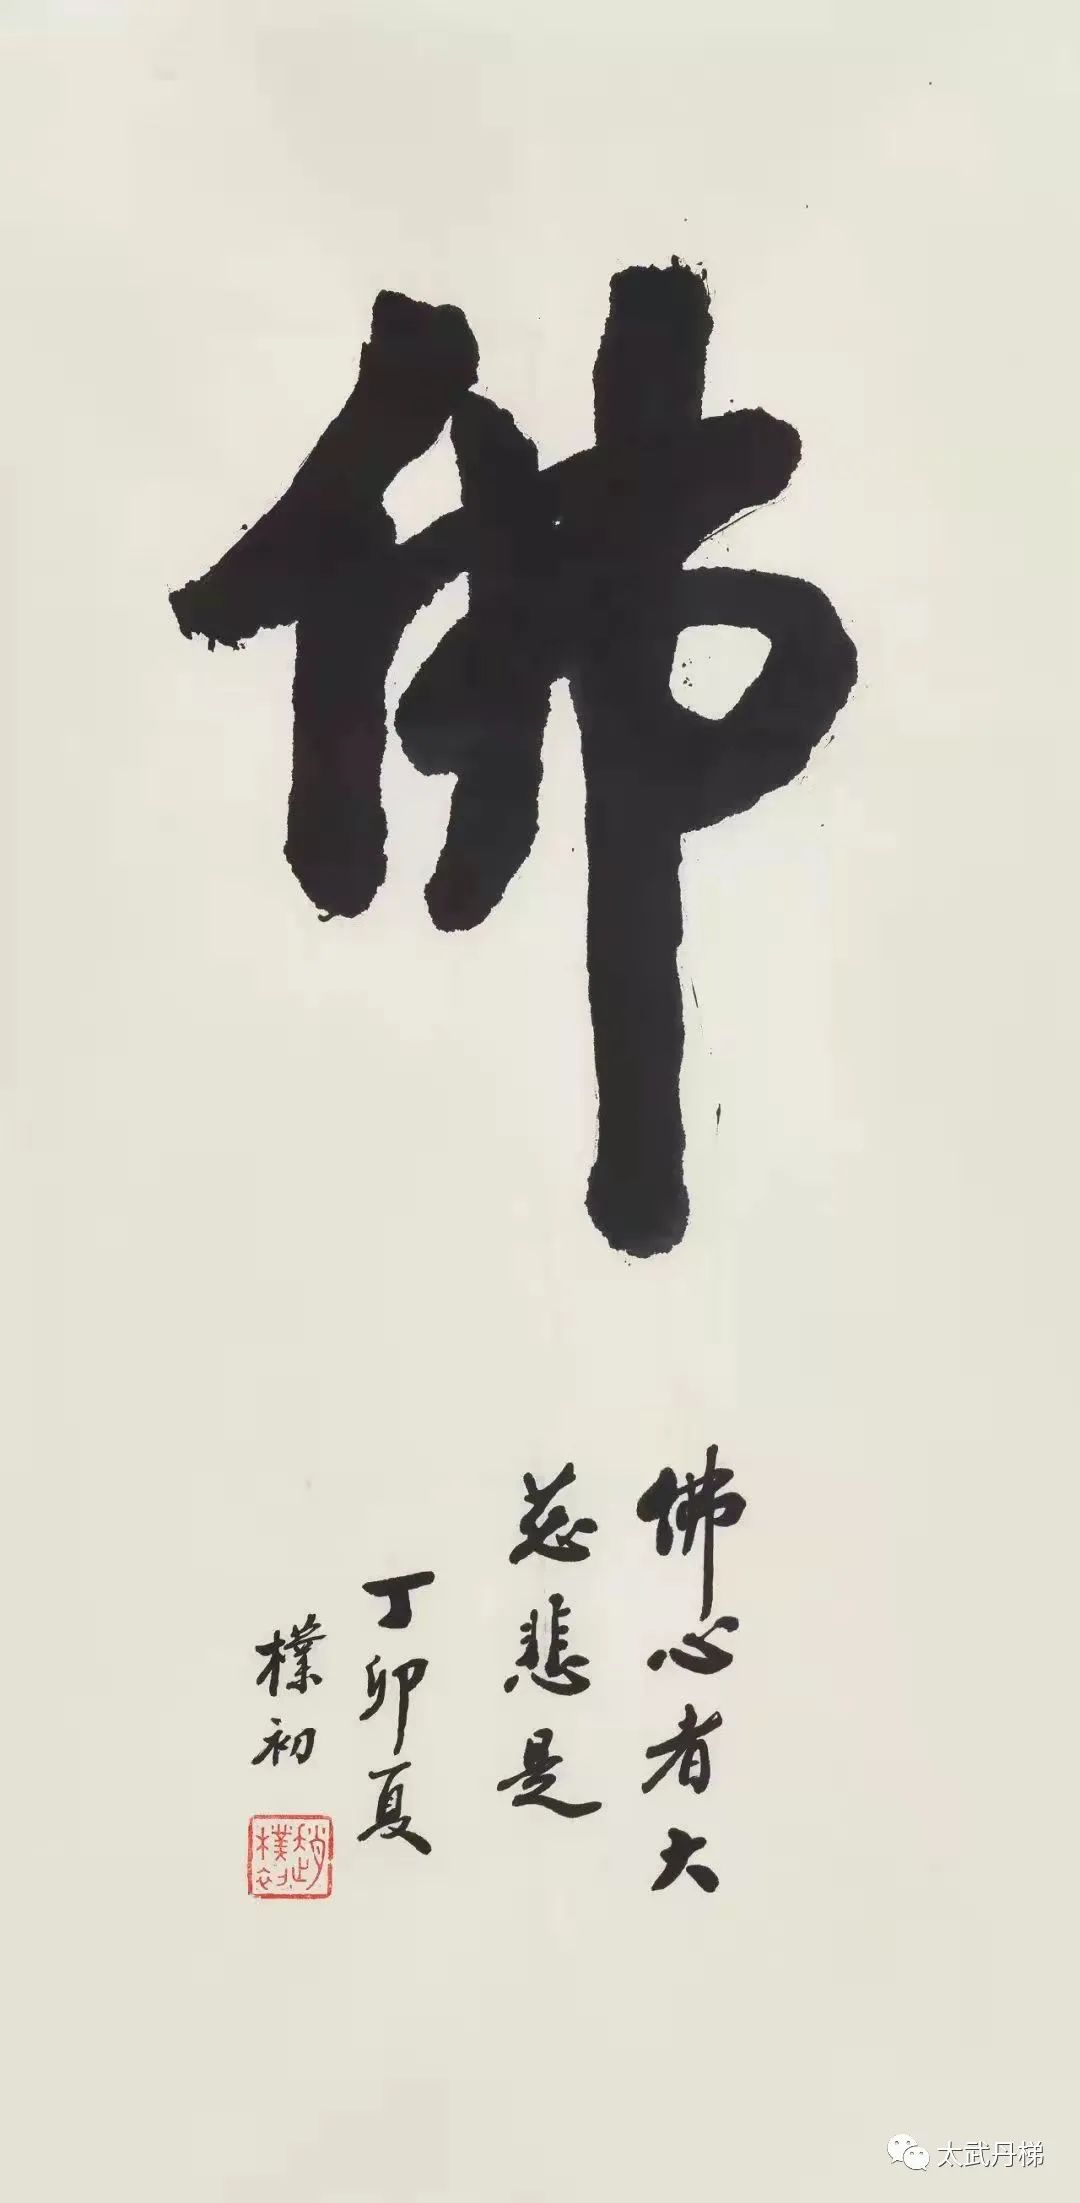 佛
佛心者大
慈悲是
丁卯夏
樸初
趙樸初
太武丹梯